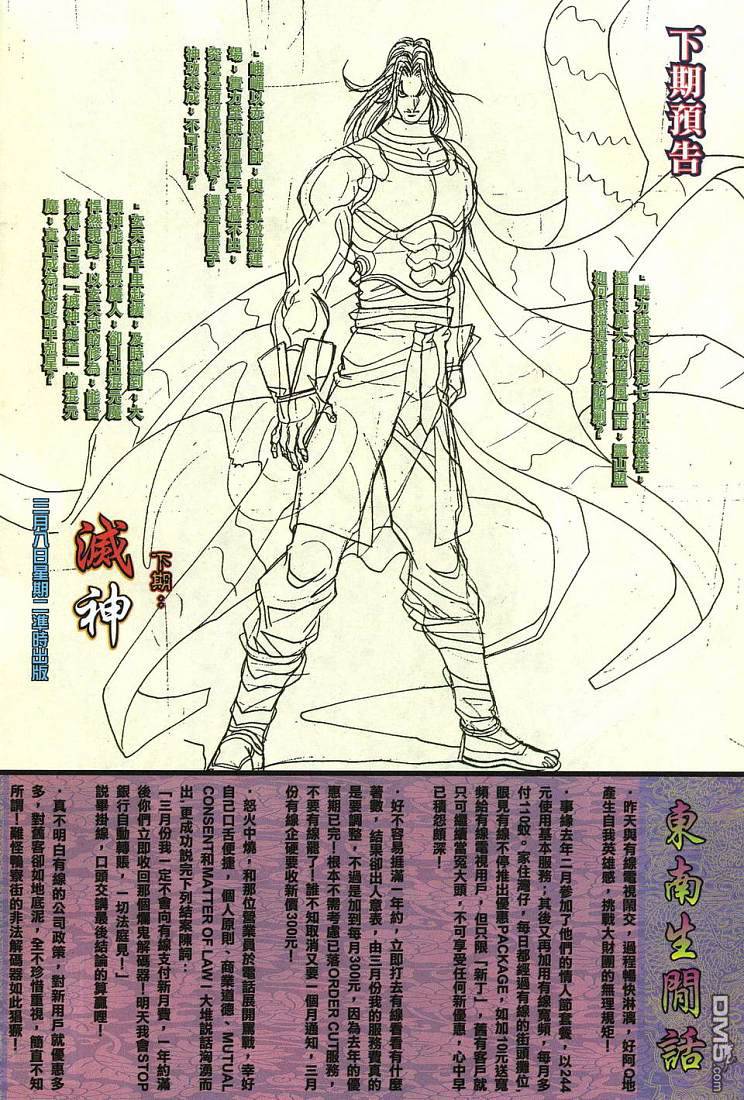 下期預告
·戰力
如何
·峨嵋以赤腳掛帥；與魔軍激戰連
場；實力堅強的風雷子潛藏不出；
究竟是
神功未成；不可出戰？
·玄天武千里赴援；及時趕到；大
悍然現身；以玄天武的修為；能否
敵得住已練「滅神絕道」的混元
魔；真正成為他的命中剋星？
下期：
滅神
三月八日星期二準時出版
東南生閒話
·昨天與有線電視鬧交，過程暢快淋漓，好阿Q地
產生自我英雄感，挑戰大財團的無理規矩！
·事緣去年二月參加了他們的情人節套餐，以244
元使用基本服務；其後又再加用有線寬頻，每月多
付110蚊。家住灣仔，每日都經過有線的街頭攤位，
眼見有線不停推出優惠PACKAGE，如加10元送寬
頻給有線電視用戶，但只限「新丁」，舊有客戶就
只可繼續當冤大頭，不可享受任何新優惠，心中早
已積怨頗深！
·好不容易捱滿一年約，立即打去有線看看有什麼
著數，結果卻出人意表，由三月份我的服務費真的
是要調整，不過是加到每月300元，因為去年的優
惠期已完！根本不需考慮已落ORDER CUT服務，
不要有線罷了！誰不知取消又要一個月通知，三月
份有線企硬要收新價300元！
·怒火中燒，和那位營業員於電話展開罵戰，幸好
自己口舌便捷，個人原則、商業道德、MUTUAL
CONSENT和MATTER OF LAW！大堆說話淘湧而
出，更成功說完下列結案陳詞：
「三月份我一定不會向有線支付新月費，一年約滿
後你們立即收回那個爛鬼解碼器！明天我會STOP
銀行自動轉賬，一切法庭見！」
說畢掛線，口頭交講最後結論的算贏哩！
·真不明白有線的公司政策，對新用戶就優惠多
多，對舊客卻如地底泥，全不珍惜重視，簡直不知
所謂！難怪鴨寮街的非法解碼器如此猖獗！
DM5.com